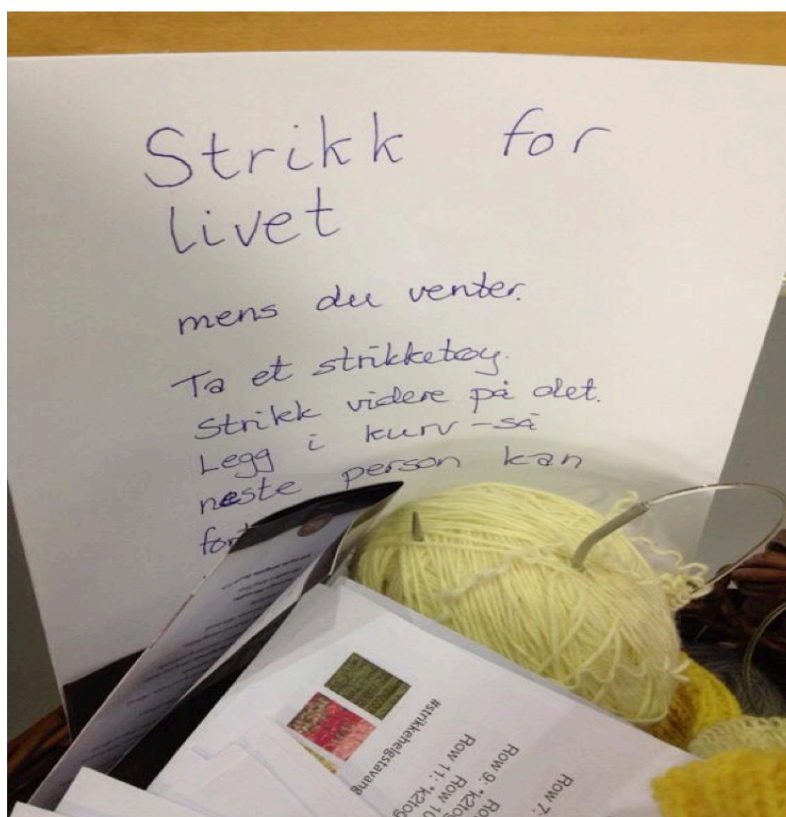 Strikk for
livet
mens du venter.
Ta et strikketøy.
Strikk videre på det.
Legg i kurv - så
neste person kan
#strikkehelgstavang
Row 7:
Row 9: *k2tog
Row 10
Row 11: *k2tog